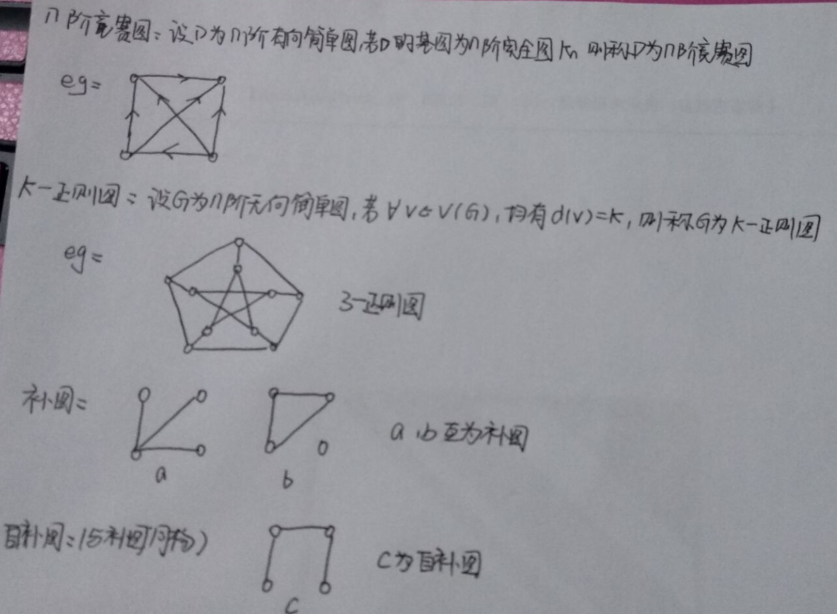 n阶竞赛图:设D为n阶有向简单图,若D的基图为n阶完全图Kn,则称D为n阶竞赛图
eg:
K-正则图:设G为n阶无向简单图,若∀v∈V(G),均有d(v)=K,则称G为K-正则图
eg:
3-正则图
补图:
a b
a、b互为补图
自补图:(与补图同构)
C为自补图
C